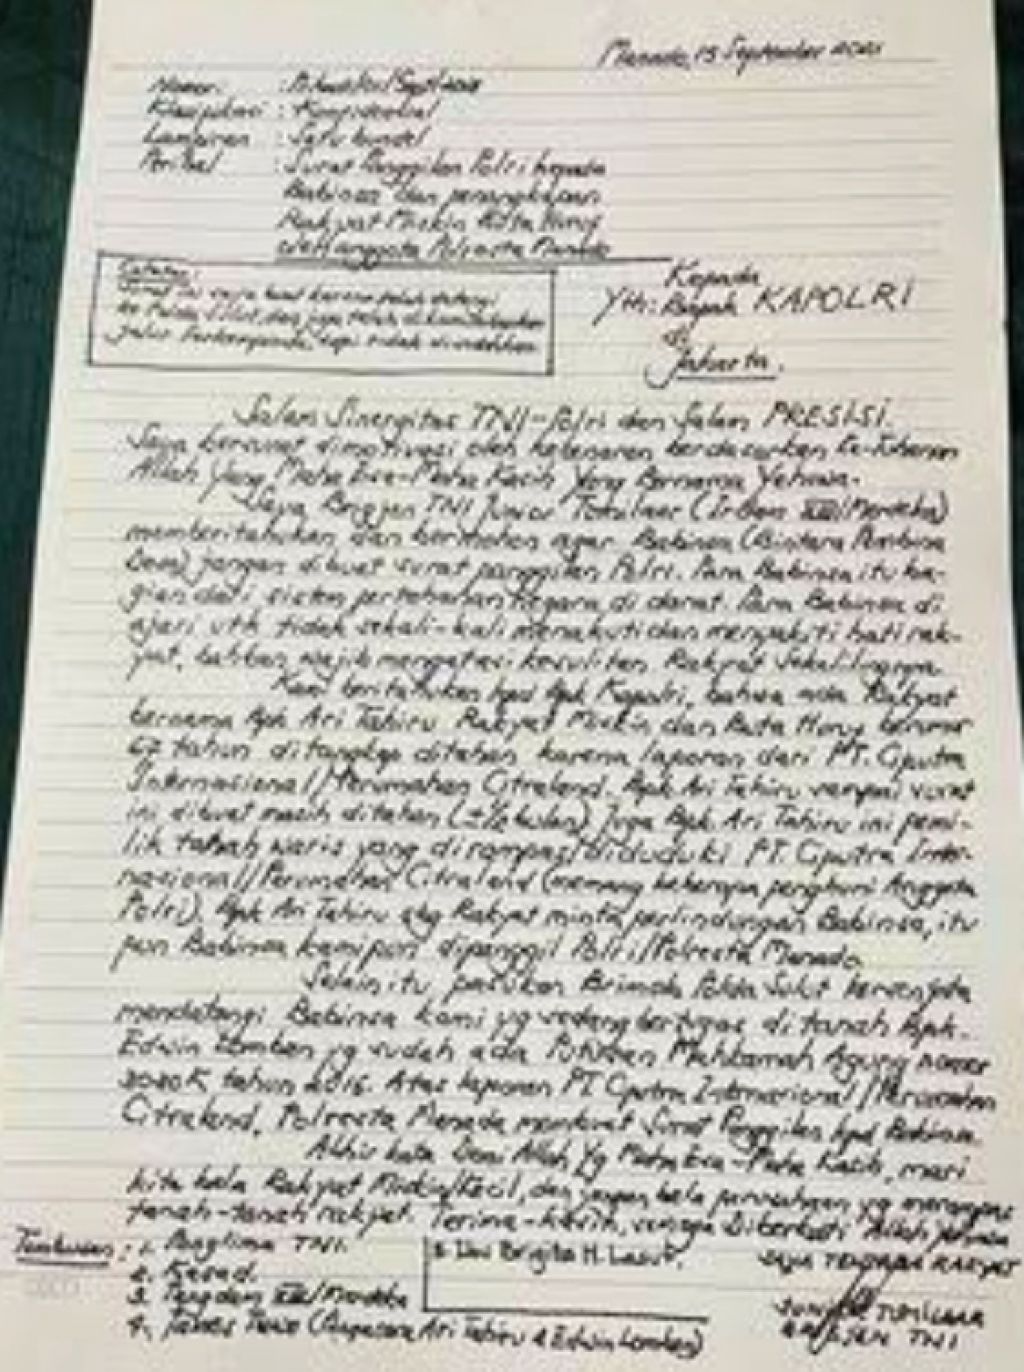 Manado, 15 September 2021
Nomor :
Klasifikasi : Konfidensial
Lampiran : Satu bundel
Perihal : Surat Panggilan Polri kepada
Babinsa dan penangkapan
Rakyat Miskin Buta Huruf
oleh anggota Polresta Manado
Catatan:
Surat ini saya buat karena telah datangi
ke Polda Sulut, dan juga telah dikomunikasikan
jalur Forkopimda, tapi tidak diindahkan
Kepada
Yth: Bapak KAPOLRI
di
Jakarta.
Salam Sinergitas TNI-Polri dan Salam PRESISI.
Saya bersurat dimotivasi oleh kebenaran berdasarkan Ke-Tuhanan
Allah Yang Maha Esa-Maha Kasih Yang Bernama Yahwa.
Saya Brigjen TNI Junior Tumilaar (Irdam XIII/Merdeka)
memberitahukan dan bermohon agar Babinsa (Bintara Pembina
Desa) jangan dibuat surat panggilan Polri. Para Babinsa itu ba-
gian dari sistem pertahanan Negara di darat. Para Babinsa di
ajari utk tidak sekali-kali menakuti dan menyakiti hati rak-
yat, bahkan wajib mengatasi kesulitan Rakyat sekelilingnya.
Kami beritahukan kpd Bpk Kapolri, bahwa ada Rakyat
bernama Bpk Ari Tahiru Rakyat Miskin dan Buta Huruf berumur
67 tahun ditangkap ditahan karena laporan dari PT. Ciputra
Internasional/Perumahan Citraland. Bpk Ari Tahiru sampai surat
ini dibuat masih ditahan Juga Bpk. Ari Tahiru ini pemi-
lik tanah waris yang dirampas/diduduki PT. Ciputra Inter-
nasional/Perumahan Citraland (memang beberapa penghuni Anggota
Polri). Bpk Ari Tahiru sbg Rakyat minta perlindungan Babinsa, itu
pun Babinsa kami pun dipanggil Polri/Polresta Manado
Selain itu pasukan Brimob Polda Sulut bersenjata
mendatangi Babinsa kami yg sedang bertugas di tanah Bpk.
Edwin Lomban yg sudah ada Putusan Mahkamah Agung nomor
3030K tahun 2016. Atas laporan PT Ciputra Internasional/Perumahan
Citraland, Polresta Manado membuat Surat Panggilan kpd Babinsa.
Akhir kata Demi Allah Yg Maha Esa-Maha Kasih, mari
kita bela Rakyat Miskin/Kecil, dan jangan bela perusahaan yg merampas
tanah-tanah rakyat. Terima-kasih, semoga Diberkati Allah
Tembusan : 1. Panglima TNI.
2. Kasad.
3. Pangdam XIII/Merdeka
4. (Pengacara Ari Tahiru & Edwin Lomban)
5. Brigita H. Lasut.
SAYA TENTARA RAKYAT
JUNIOR TUMILAAR
BRIGJEN TNI